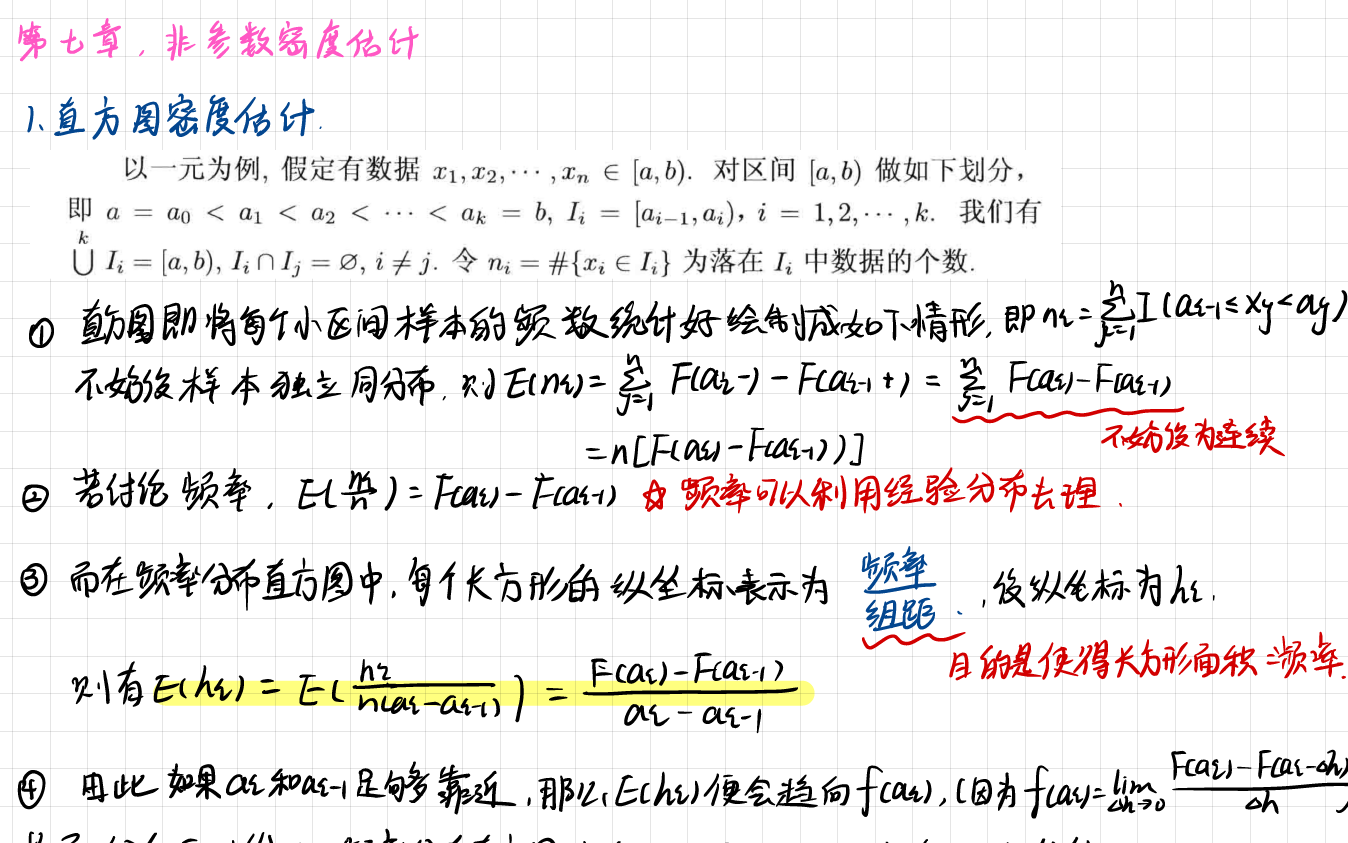 第七章,非参数密度估计
1、直方图密度估计.
以一元为例, 假定有数据 x₁, x₂, ⋯ , xₙ ∈ [a, b). 对区间 [a, b) 做如下划分,
即 a = a₀ < a₁ < a₂ < ⋯ < aₖ = b, Iᵢ = [aᵢ₋₁, aᵢ), i = 1, 2, ⋯ , k. 我们有
⋃ᵏ Iᵢ = [a, b), Iᵢ ∩ Iⱼ = ∅, i ≠ j. 令 nᵢ = #{xᵢ ∈ Iᵢ} 为落在 Iᵢ 中数据的个数.
① 直方图即将每个小区间样本的频数统计好绘制成如下情形,即 nᵢ = Σⁿⱼ₌₁ I(aᵢ₋₁ ≤ xⱼ < aⱼ)
不妨设样本独立同分布,则 E(nᵢ) = Σⁿⱼ₌₁ F(aᵢ-) - F(aᵢ₋₁+) = Σⁿⱼ₌₁ F(aᵢ) - F(aᵢ₋₁)
不妨设为连续
= n[F(aᵢ) - F(aᵢ₋₁))]
② 若讨论频率,E(nᵢ/n) = F(aᵢ) - F(aᵢ₋₁) ☆ 频率可以利用经验分布去理.
③ 而在频率分布直方图中,每个长方形的纵坐标表示为 频率/组距.,设纵坐标为hᵢ.
目的是使得长方形面积=频率.
则有 E(hᵢ) = E(nᵢ/n(aᵢ-aᵢ₋₁)) = (F(aᵢ)-F(aᵢ₋₁))/(aᵢ-aᵢ₋₁)
④ 因此如果aᵢ和aᵢ₋₁足够多靠近,那么E(hᵢ)便会趋向f(aᵢ),(因为 f(aᵢ) = lim Δh→0 (F(aᵢ)-F(aᵢ-Δh))/Δh